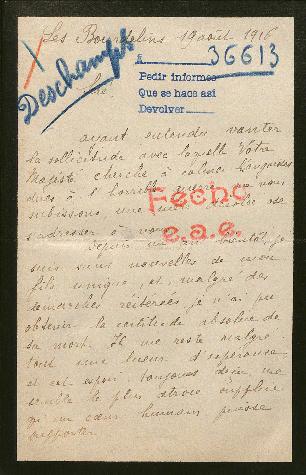 Les Bourdelins 19 août 1916
Deschamps
36613
Pedir informes
Que se hace asi
Devolver
Sire
ayant entendu vanter
la sollicitude avec laquelle Votre
Majesté cherche à calmer
dues à l'horrible guerre que nous
subissons, une ose
s'adresser à vous
Fecho
e.a.e.
Depuis un an bientôt, je
suis sans nouvelles de mon
fils unique, et, malgré des
démarches réitérées je n'ai pu
obtenir la certitude absolue de
sa mort. Il me reste malgré
tout une lueur d'espérance
et cet espoir toujours déçu me
semble le plus atroce supplice
qu'un cœur humain puisse
supporter.